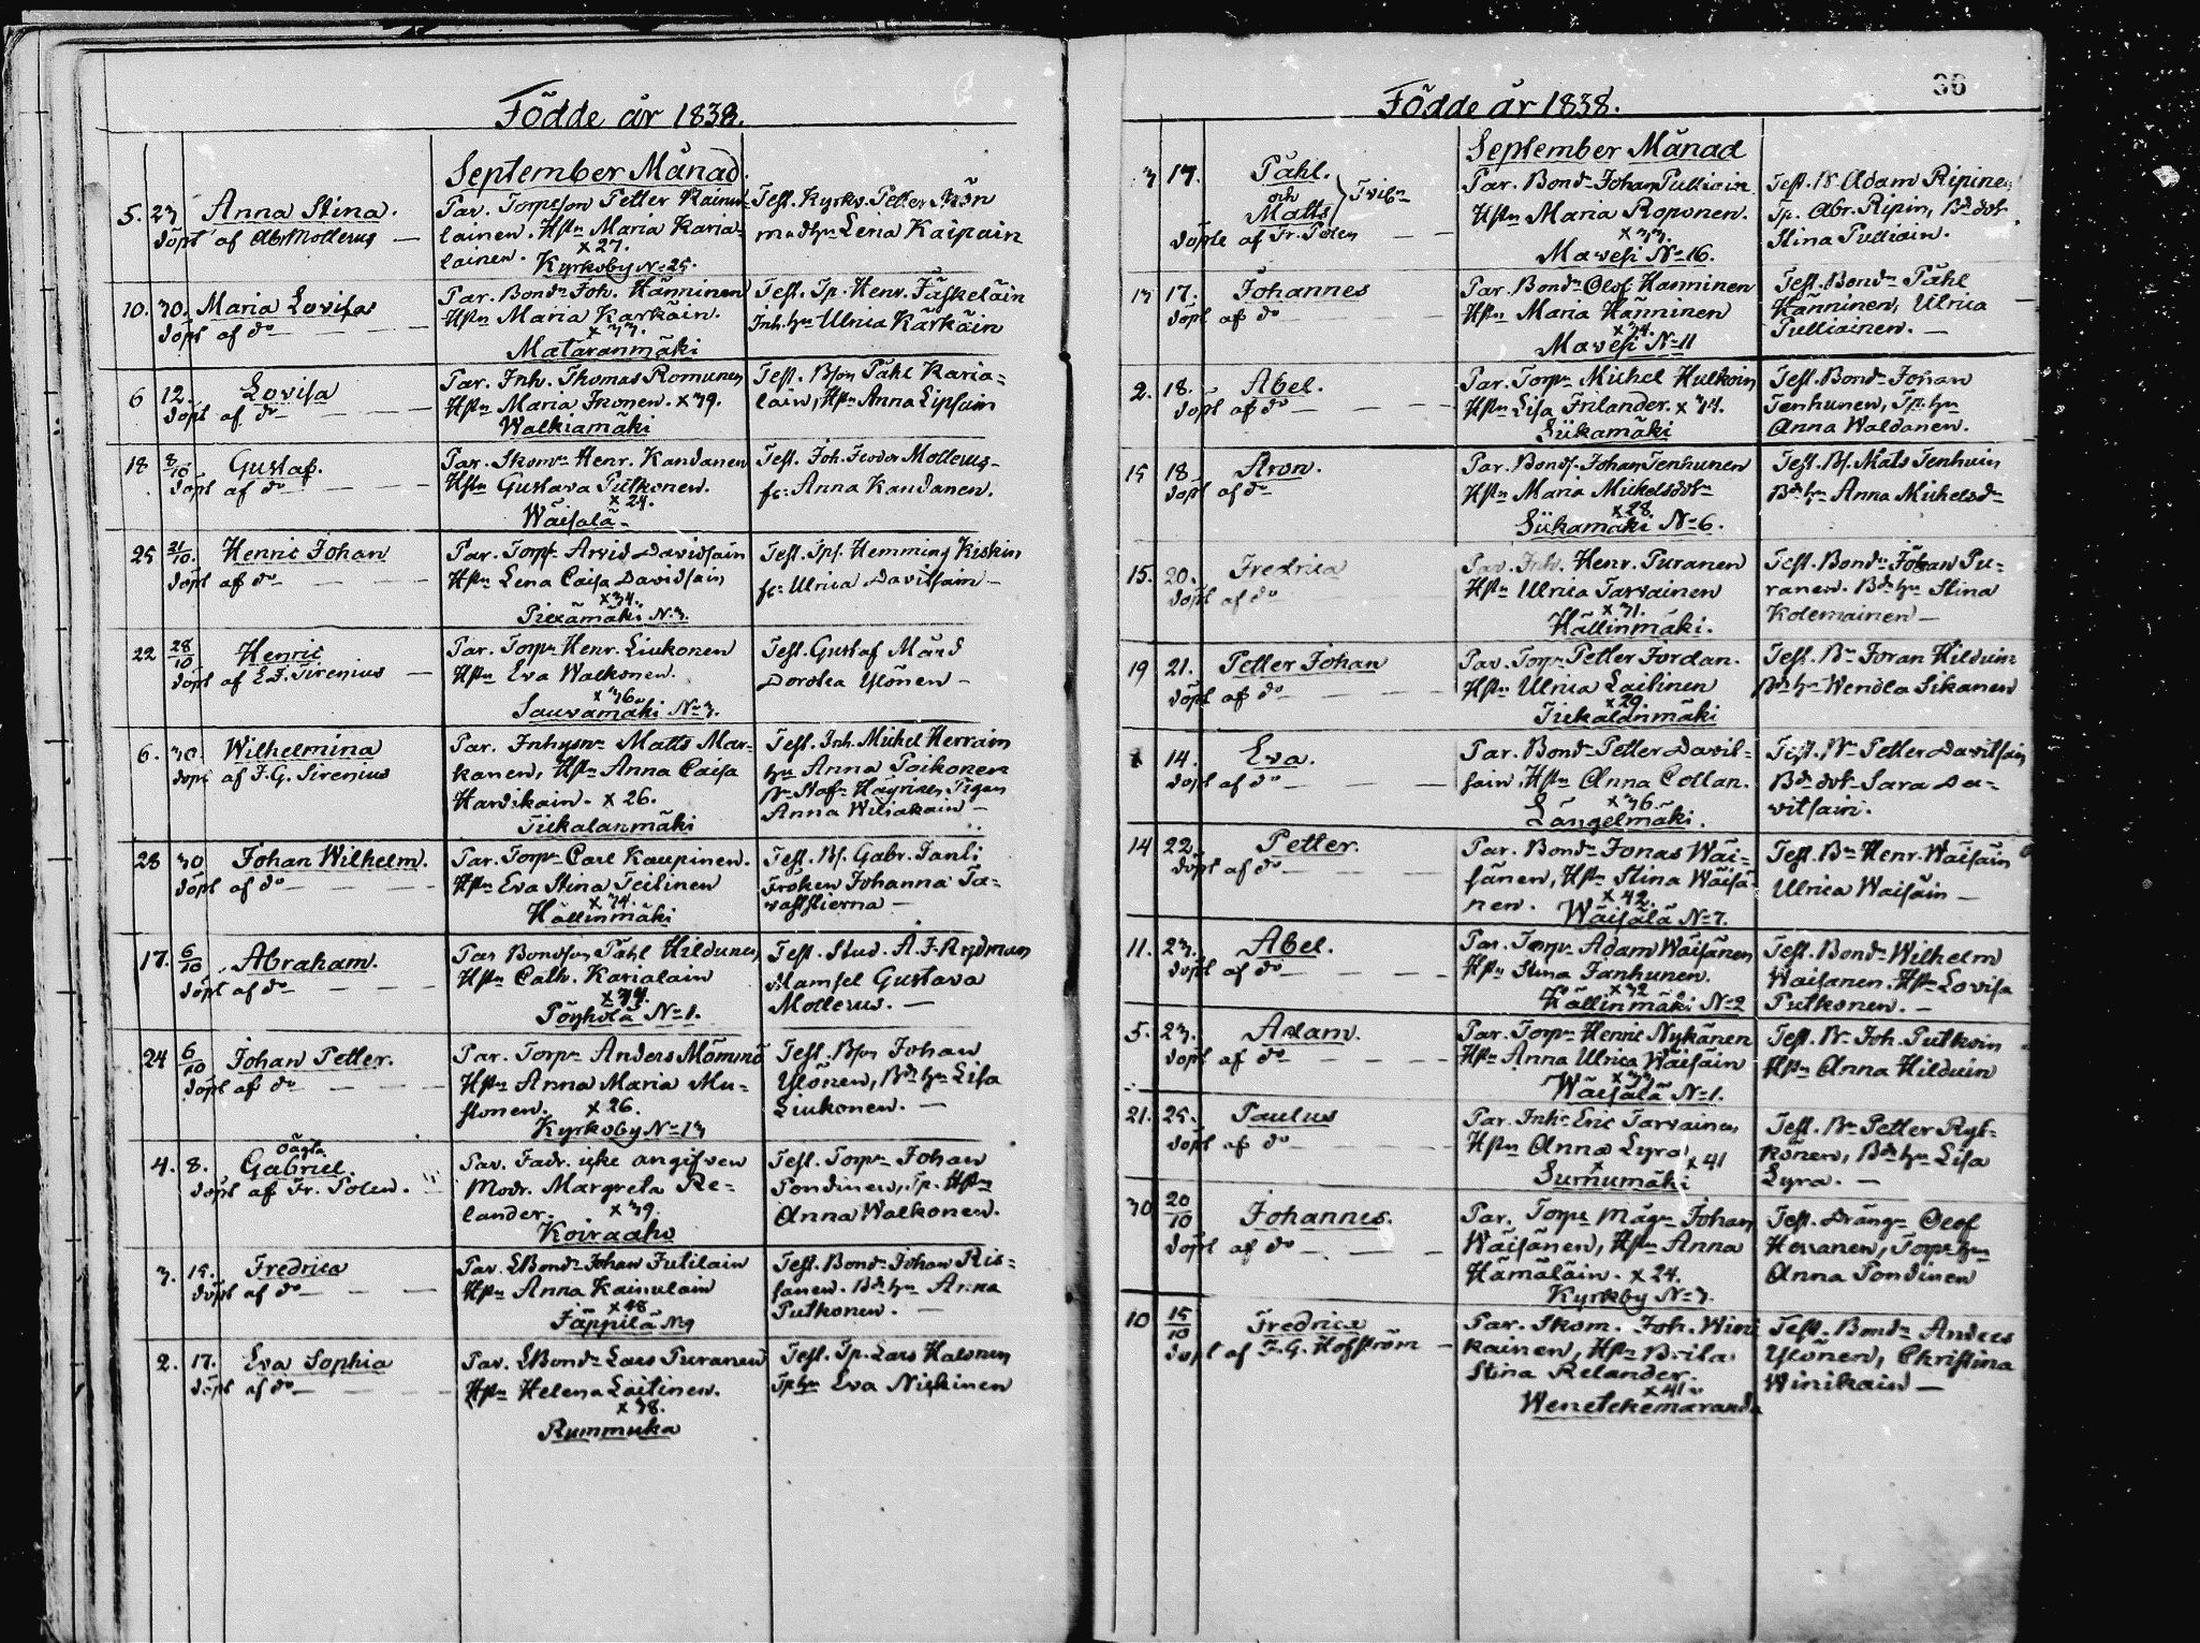 Födde år 1838.
September Månad.
5. 23 Anna Stina.
döpt af Abr Mollerus —
Par. Torpeson Petter Kainu-
lainen. Hstn Maria Karia-
lainen. x 27.
Kyrkoby No 25.
Test. Kyrkv. Petter
m dhn Lena Kaipain
10. 30. Maria Lovisa
döpt af do —
Par. Bondn Joh. Hänninen
Hstn Maria Karkäin.
x 33.
Mataranmäki
Test. Tp. Henr. Jäskeläin
Inh. hn Ulrica Karkäin
6 12. Lovisa
döpt af do —
Par. Inh. Thomas Romunen
Hstn Maria Ikonen. x 39.
Walkiamäki
Test. Bson Påhl Karia=
lain, Hstn Anna Lipsain
18 8/10 Gustaf.
döpt af do —
Par. Skomr Henr. Kandanen
Hstn Gustava Putkonen.
x 24.
Wäisälä -
Test. Joh. Feodor Mollerus -
fr: Anna Kandanen.
25 21/10. Henric Johan
döpt af do —
Par. Torp. Arvid Davidsain
Hstn Lena Caisa Davidsain
x 34.
Piexämäki No 3.
Test. Tps. Hemming Kiskin
fr: Ulrica Davitsain -
22 28/10 Henric
döpt af E.J. Sirenius —
Par. Torpr Henr. Liukonen
Hstn Eva Walkonen.
x 36.
Sauvamäki No 3.
Test. Gustaf Mård
Dorotea Ylönen -
6. 30. Wilhelmina
döpt af F.G. Sirenius
Par. Inhysnr Matts Mar-
kanen, Hstn Anna Caisa
Hardikain. x 26.
Tiekalanmäki
Test. Inh. Michel Herrain
hn Anna Poikonen
Häyrinen Pigan
Anna Wiliakain -
28 30 Johan Wilhelm.
döpt af do —
Par. Torpr Carl Kaupinen.
Hstn Eva Stina Teitinen
x 34.
Hällinmäki
Test. Bs. Gabr. Panli
Fröken Johanna Ta-
waststierna -
17. 6/10 Abraham.
döpt af do —
Par Bondson Påhl Hildunen
Hstn Cath. Karialain
x 34.
Pöyhölä No 1.
Test. Stud. A.F. Aydman
Mamsel Gustava
Mollerus. —
24 6/10 Johan Petter.
döpt af do —
Par. Torpr Anders Mömmö
Hstn Anna Maria Mu-
stonen. x 26.
Kyrkoby No 13
Test. Bson Johan
Ylönen, Bdhn Lisa
Liukonen. —
4. 8. oägta
Gabriel.
döpt af Fr. Polen.
Par. Fadr. icke angifven
Modr. Margreta Re-
lander. x 39.
Koiraaho
Test. Torpr Johan
Pondinen, Tp. Hstn
Anna Walkonen.
3. 15. Fredrica
döpt af do —
Par. Bondn Johan Jutilain
Hstn Anna Kainulain
x 48
Jäppilä No 9
Test. Bondn Johan Ris-
sanen. Bdhn Anna
Putkonen. —
2. 17. Eva Sophia
döpt af do —
Par. Bondn Lars Puranen
Hstn Helena Laitinen.
x 38.
Rummuka
Test. Tp. Lars Halonen
Tp hn Eva Niskinen
36
Födde år 1838.
September Månad
3 17. Påhl.
och
Matts } Tvil.
döpte af Fr. Polen —
Par. Bondn Johan Pulliain
Hstn Maria Roponen.
x 33.
Mavesi No 16.
Test. Adam Ripinen
Tp. Abr. Ripin, Bd dot
Stina Pulliain.
13 17. Johannes
döpt af do —
Par. Bondn Olof Hanninen
Hstn Maria Hänninen
x 34.
Mavesi No 11
Test. Bondn Påhl
Hänninen, Ulrica
Pulliainen. —
2. 18. Abel.
döpt af do —
Par. Torpr Michel Hulkoin
Hstn Lisa Frilander. x 34.
Siikamäki
Test. Bondn Johan
Tenhunen, Tp. hn
Anna Waldanen.
15 18 Aron.
döpt af do
Par. Bonds. Johan Tenhunen
Hstn Maria Mickelsdotr
x 28.
Siikamäki No 6.
Test. Bs. Mats Tenhuin
Bdhn Anna Michelsdr
15. 20. Fredrica
döpt af do
Par. Inh. Henr. Puranen
Hstn Ulrica Tarvainen
x 31.
Hällinmäki.
Test. Bondn Johan Pu-
ranen. Bdhn Stina
Kolemainen —
19 21. Petter Johan
döpt af do —
Par. Torpr Petter Jordan.
Hstn Ulrica Laitinen
x 29.
Tiekalanmäki
Test. Bn Joran Hilduin
Bdhn Wendla Sikanen
14. Eva.
döpt af do —
Par. Bondn Petter Davit-
sain, Hstn Anna Collan.
x 36.
Längelmäki.
Test. Petter Davitsain
Bd dotr Sara Da-
vitsain.
14 22. Petter.
döpt af do —
Par. Bondn Jonas Wäi-
sänen, Hstn Stina Wäisä
nen. x 42.
Wäisälä No 7.
Test. Bn Henr. Wäisäin
Ulrica Waisäin —
11. 23. Abel.
döpt af do —
Par. Torpr Adam Wäisänen
Hstn Stina Janhunen.
x 32
Hällinmäki No 2
Test. Bondn Wilhelm
Waisanen. Hstn Lovisa
Putkonen. —
5. 23. Adam.
döpt af do —
Par. Torpr Henric Nykänen
Hstn Anna Ulrica Wäisäin
x 33
Wäisälä No 1.
Test. Joh. Putkoin
Hstn Anna Hilduin
21. 25. Paulus
döpt af do —
Par. Inhs Eric Tarvainen
Hstn Anna Lyra x 41
Surnumäki
Test. Bn Petter Ryt-
könen, Bdhn Lisa
Lyra. —
30 20/10 Johannes.
döpt af do —
Par. Torps mågn Johan
Wäisänen, Hstn Anna
Hämäläin. x 24.
Kyrkby No 3.
Test. Drängn Olof
Herranen, Torps hn
Anna Pondinen
10 15/10 Fredrica
döpt af F.G. Hofström -
Par. Skom. Joh. Wini
kainen, Hstn Brita
Stina Relander.
x 41.
Wenetekemaranda
Test. Bondn Anders
Ylönen, Christina
Winikain —